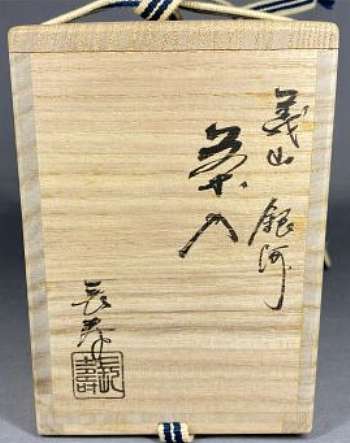 義山 銀河
茶入
長寿